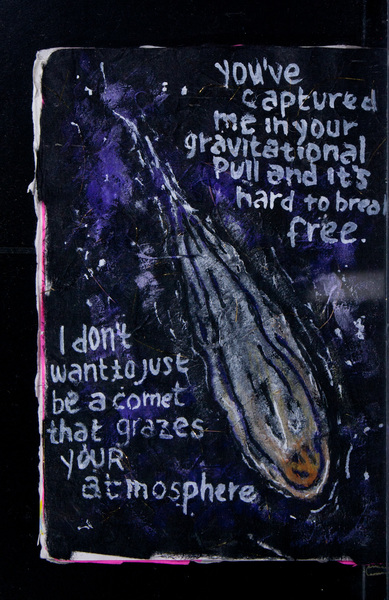 you've
captured
me in your
gravitational
pull and it's
hard to break
free.
I don't
want to just
be a comet
that grazes
yOUR
atmosphere